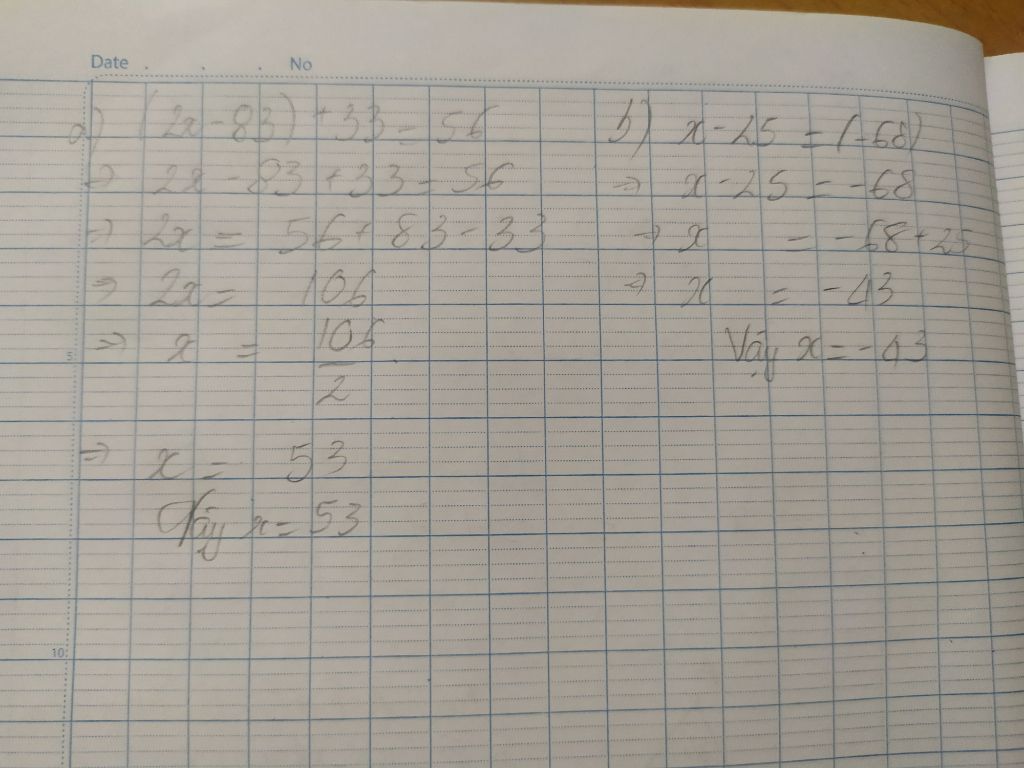 Date . . . No
a) (2x - 83) + 33 = 56
=> 2x - 83 + 33 = 56
=> 2x = 56 + 83 - 33
=> 2x = 106
=> x = 106/2
=> x = 53
Vậy x = 53
b) x - 25 = (-68)
=> x - 25 = -68
=> x = -68 + 25
=> x = -43
Vậy x = -43
5
10